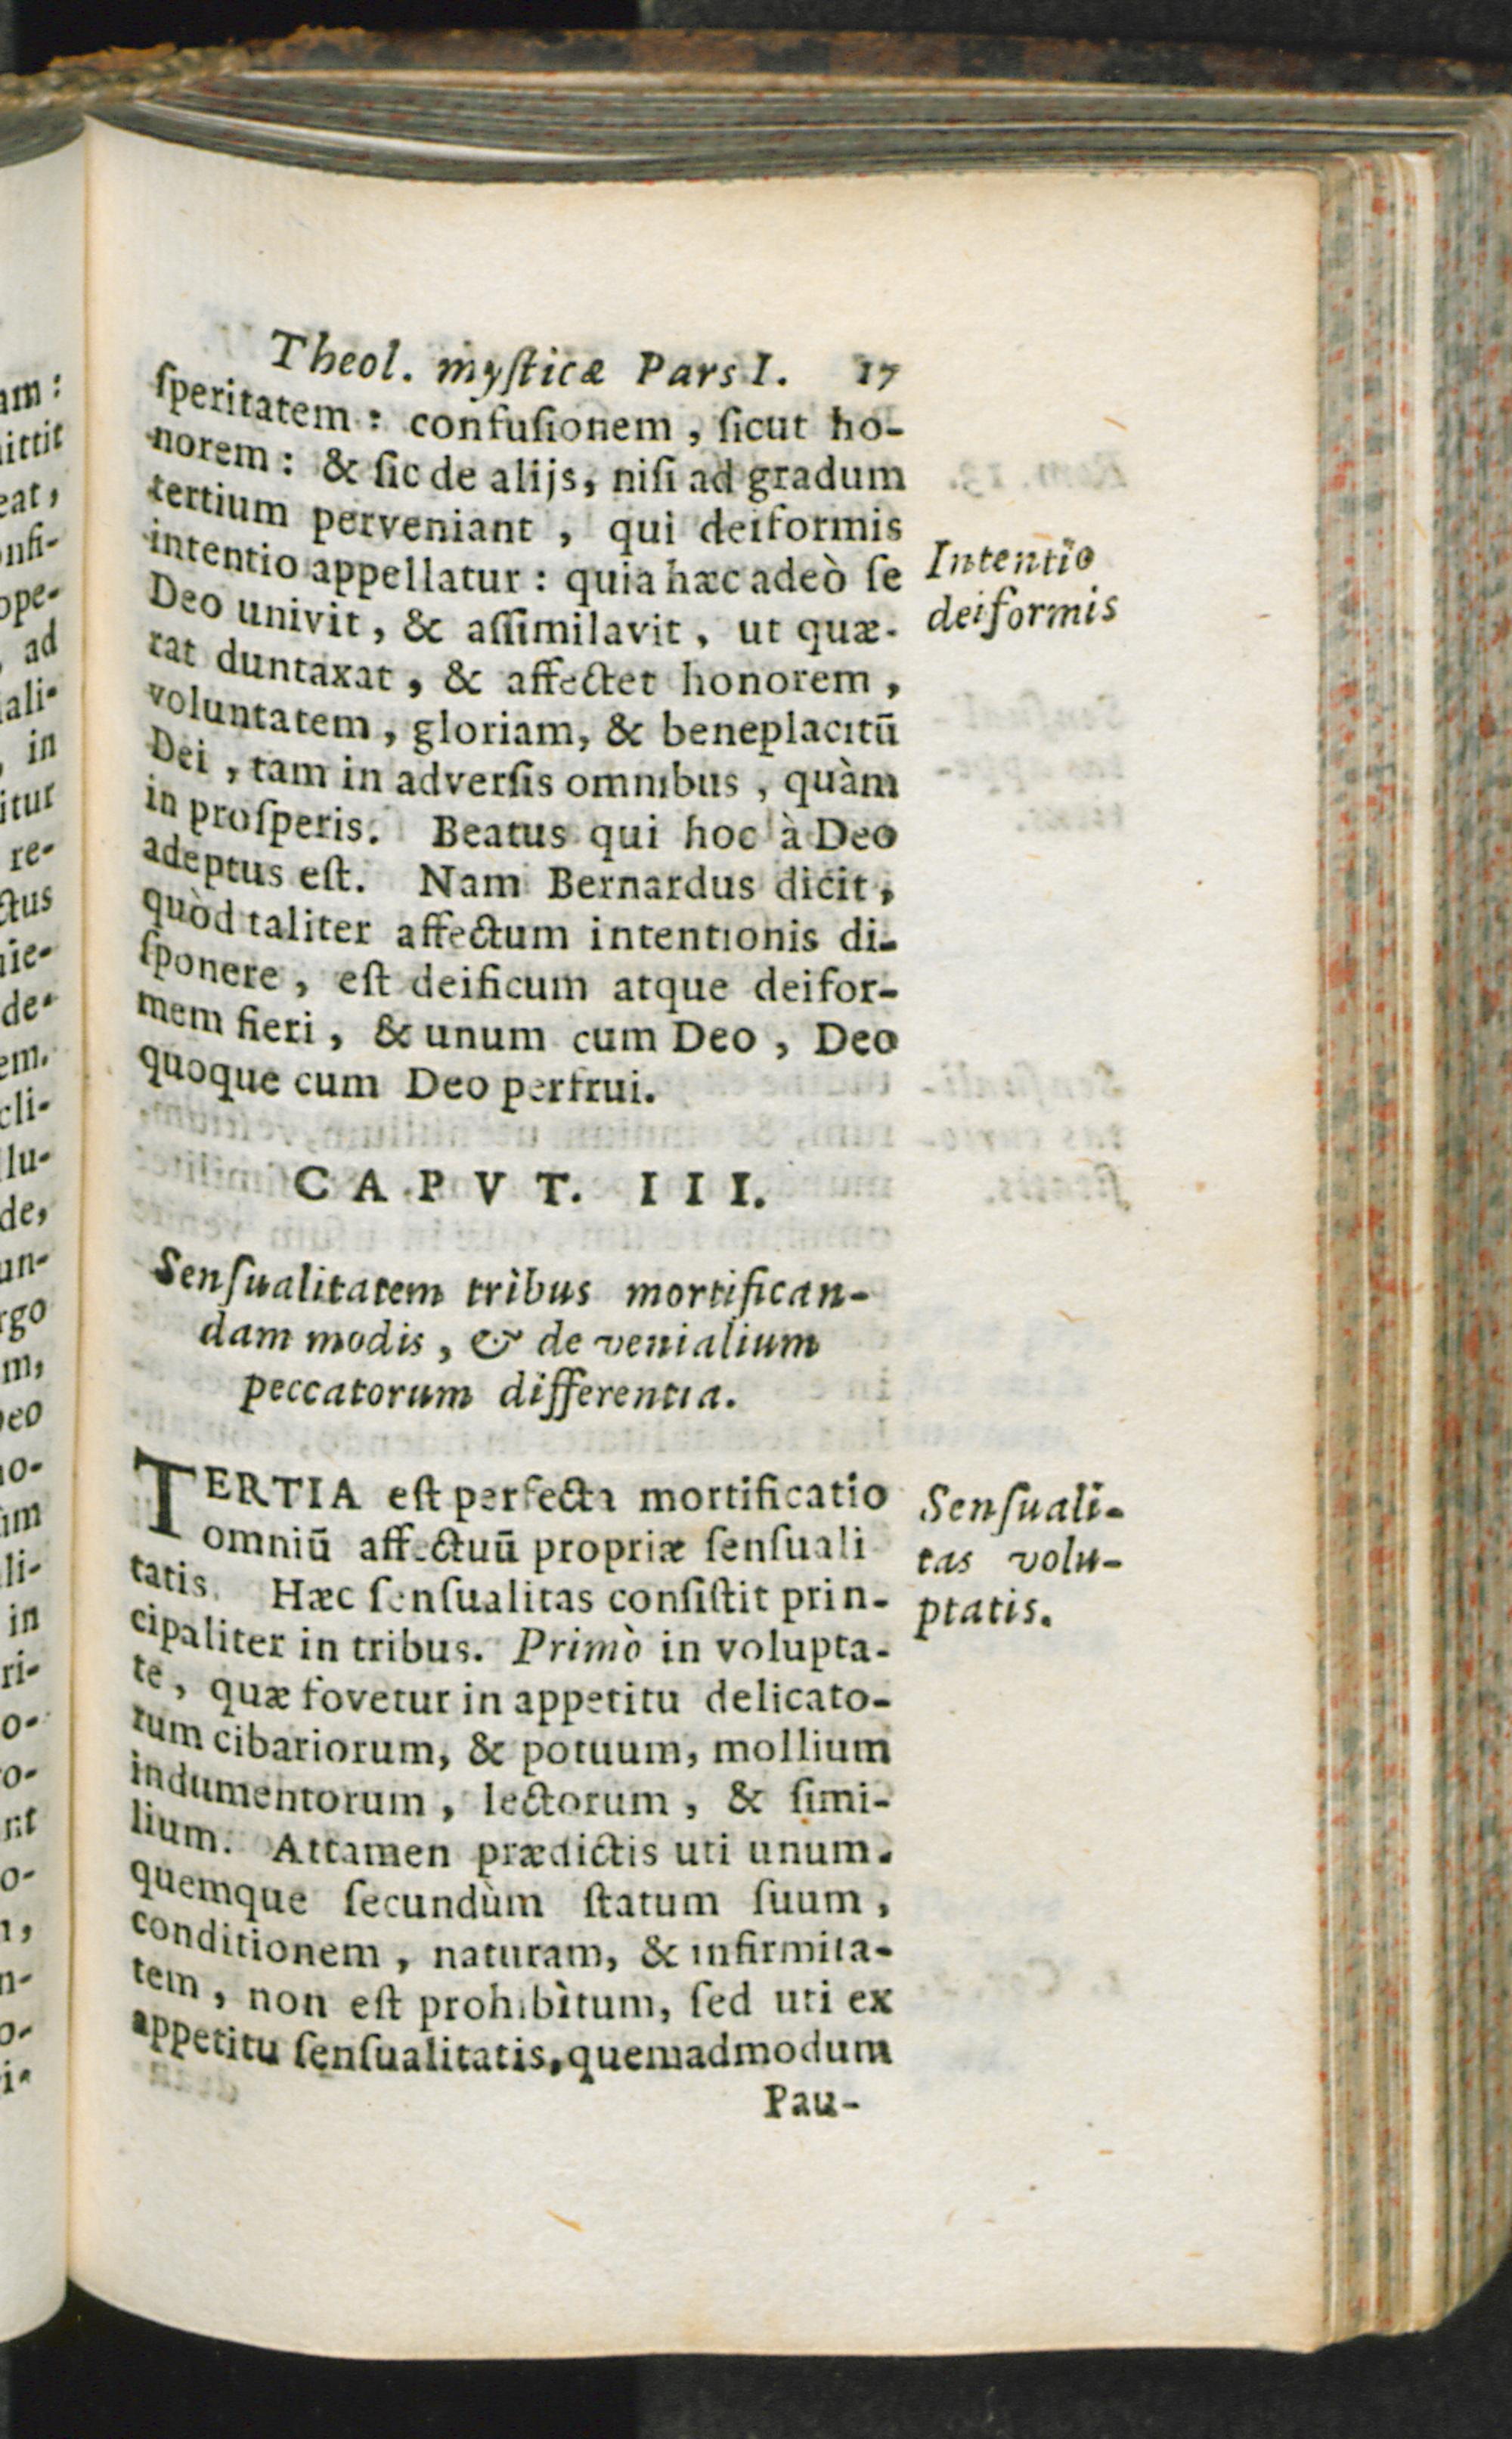 Theol. myſticæ Pars I. 17
ſperitatem: confuſionem, ſicut ho-
norem: & ſic de alijs, niſi ad gradum
tertium perveniant, qui deiformis
intentio appellatur: quia hæc adeò ſe
Deo univit, & aſſimilavit, ut quæ-
rat duntaxat, & affectet honorem,
voluntatem, gloriam, & beneplacitū
Dei, tam in adverſis omnibus, quàm
in proſperis. Beatus qui hoc à Deo
adeptus eſt. Nam Bernardus dicit,
quòd taliter affectum intentionis di-
ſponere, eſt deificum atque deifor-
mem fieri, & unum cum Deo, Deo
quoque cum Deo perfrui.
Intentio
deiformis
CAPVT. III.
Senſualitatem tribus mortifican-
dam modis, & de venialium
peccatorum differentia.
TERTIA eſt perfecta mortificatio
omniū affectuū propriæ ſenſuali
tatis. Hæc ſenſualitas conſiſtit prin-
cipaliter in tribus. Primò in volupta-
te, quæ fovetur in appetitu delicato-
rum cibariorum, & potuum, mollium
indumentorum, lectorum, & ſimi-
lium. Attamen prædictis uti unum-
quemque ſecundùm ſtatum ſuum,
conditionem, naturam, & infirmita-
tem, non eſt prohibitum, ſed uti ex
appetitu ſenſualitatis, quemadmodum
Pau-
Senſuali-
tas volu-
ptatis.